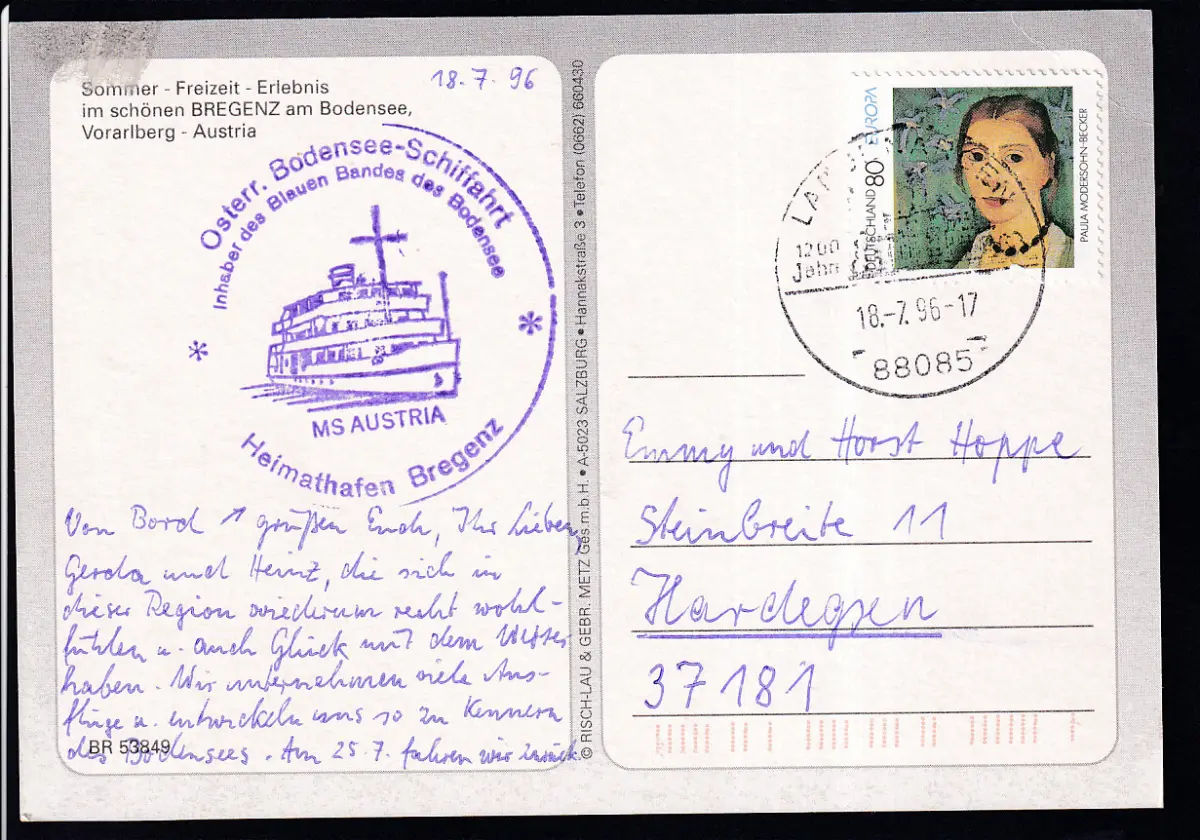 Sommer - Freizeit - Erlebnis
im schönen BREGENZ am Bodensee,
Vorarlberg - Austria
18.7.96
Österr. Bodensee-Schiffahrt
Inhaber des Blauen Bandes des Bodensee
* *
MS AUSTRIA
Heimathafen Bregenz
Von Bord ↗ grüßen Euch, Ihr Lieben,
Gerda und Heinz, die sich in
dieser Region wiederum recht wohl-
fühlen u. auch Glück mit dem Wetter
haben. Wir unternehmen viele Aus-
flüge u. entwickeln uns so zu Kennern
des Bodensees. Am 25.7. fahren wir zurück.
BR 53849
© RISCH-LAU & GEBR. METZ Ges.m.b.H. • A-5023 SALZBURG • Hannakstraße 3 • Telefon (0662) 660430
EUROPA
DEUTSCHLAND 80
PAULA MODERSOHN-BECKER
1200
Jahr
18.-7.96-17
88085
Emmy und Horst Hoppe
Steinbreite 11
Hardegsen
37181